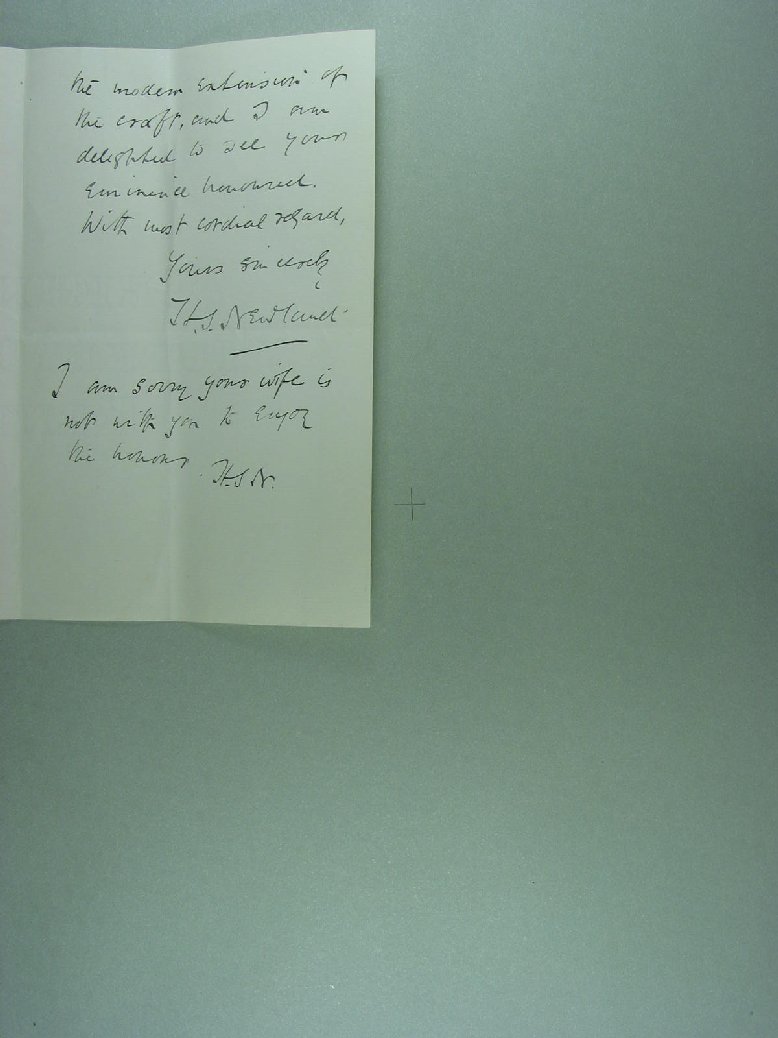 the modern extension of
the craft, and I am
delighted to see your
eminence honoured.
With most cordial regard,
Yours sincerely
H.S. Newland.
I am sorry your wife is
not with you to enjoy
the honour. H.S.N.